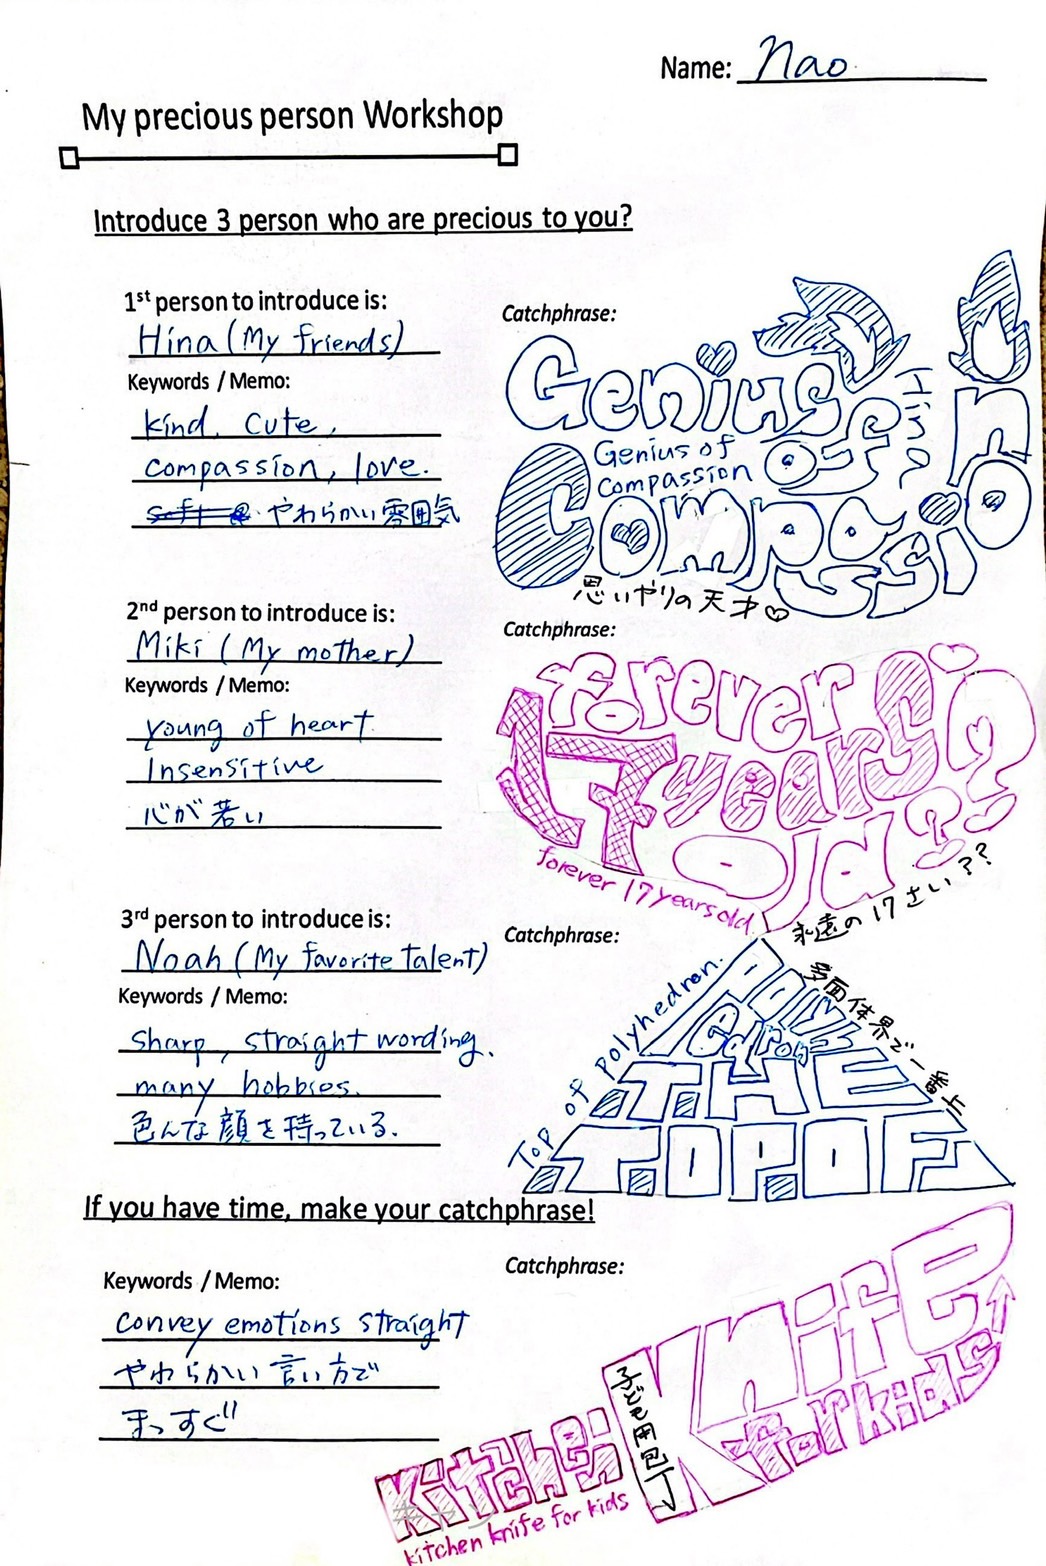 Name: Nao
My precious person Workshop
Introduce 3 person who are precious to you?
1st person to introduce is:
Hina (My friends)
Keywords / Memo:
kind, cute,
compassion, love.
やわらかい雰囲気
Catchphrase:
Genius of
Compassion
Genius of
compassion
思いやりの天才♡
2nd person to introduce is:
Miki (My mother)
Keywords / Memo:
young of heart
Insensitive
心が若い
Catchphrase:
forever
17 years
old??
forever 17 years old
永遠の17さい??
3rd person to introduce is:
Noah (My favorite talent)
Keywords / Memo:
sharp, straight wording.
many hobbies.
色んな顔を持っている.
Catchphrase:
Top of polyhedron.
多面体界で一番上
THE
TOP OF
If you have time, make your catchphrase!
Keywords / Memo:
convey emotions straight
やわらかい言い方で
まっすぐ
Catchphrase:
Kitchen
Knife
for kids
子ども包丁
kitchen knife for kids